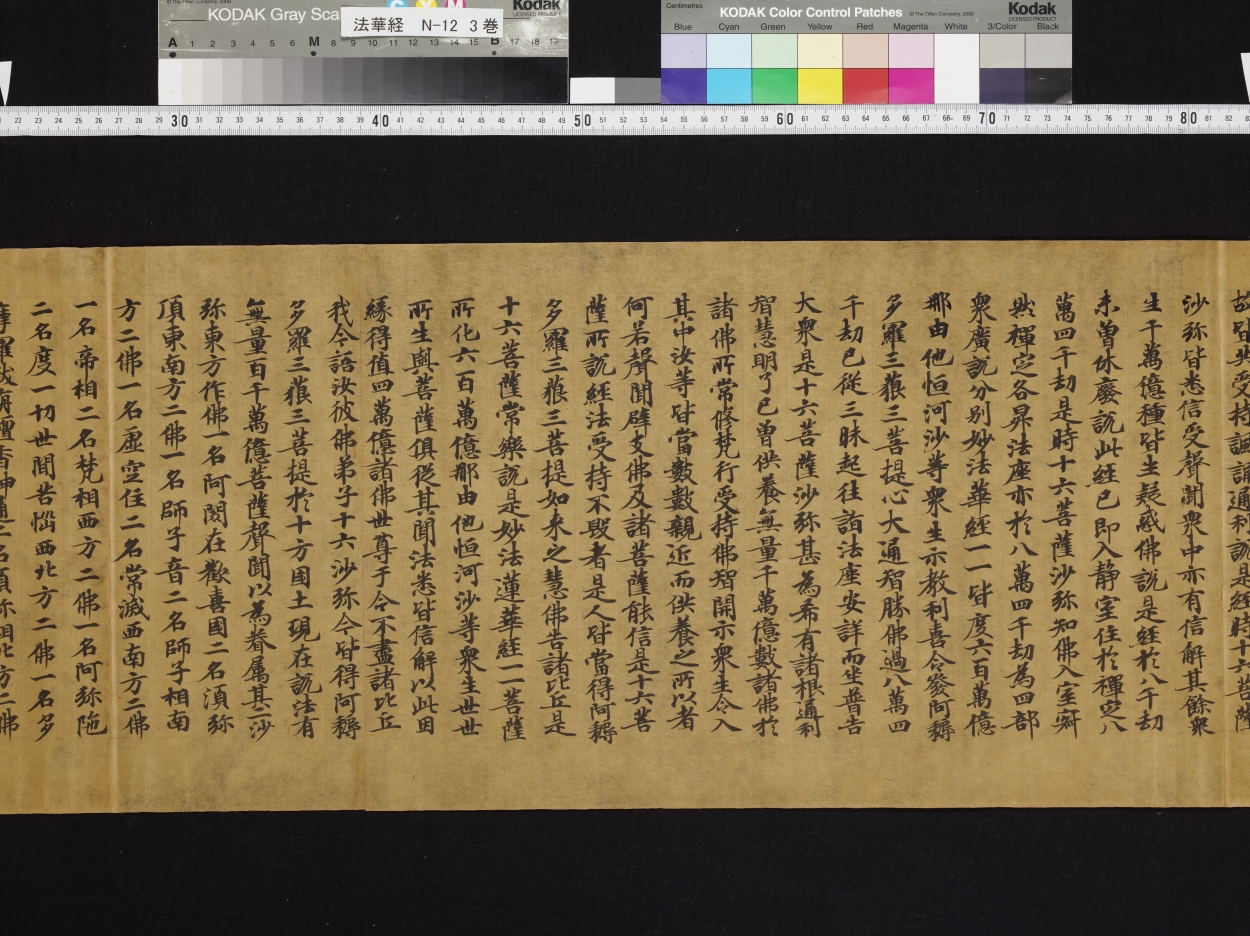 KODAK Gray Sca
法華経 N-12 3巻
Kodak
LICENSED PRODUCT
A 1 2 3 4 5 6 M 8 9 10 11 12 13 14 15 B 17 18 19
Centimetres
KODAK Color Control Patches
© The Tiffen Company, 2000
Kodak
LICENSED PRODUCT
Blue Cyan Green Yellow Red Magenta White 3/Color Black
沙弥皆悉信受聲聞衆中亦有信解其餘衆
生千萬億種皆生疑惑佛說是経於八千劫
未曾休廢說此経已即入静室住於禪定八
萬四千劫是時十六菩薩沙弥知佛入室寂
然禪定各昇法座亦於八萬四千劫為四部
衆廣說分別妙法華経一一皆度六百萬億
那由他恒河沙等衆生示教利喜令發阿耨
多羅三藐三菩提心大通智勝佛過八萬四
千劫已從三昧起往詣法座安詳而坐普告
大衆是十六菩薩沙弥甚為希有諸根通利
智慧明了已曾供養無量千萬億數諸佛於
諸佛所常修梵行受持佛智開示衆生令入
其中汝等皆當數數親近而供養之所以者
何若聲聞辟支佛及諸菩薩能信是十六菩
薩所說経法受持不毀者是人皆當得阿耨
多羅三藐三菩提如来之慧佛告諸比丘是
十六菩薩常樂說是妙法蓮華経一一菩薩
所化六百萬億那由他恒河沙等衆生世世
所生與菩薩俱從其聞法悉皆信解以此因
緣得值四萬億諸佛世尊于今不盡諸比丘
我今語汝彼佛弟子十六沙弥今皆得阿耨
多羅三藐三菩提於十方国土現在說法有
無量百千萬億菩薩聲聞以為眷属其二沙
弥東方作佛一名阿閦在歡喜国二名湏弥
頂東南方二佛一名師子音二名師子相南
方二佛一名虛空住二名常滅西南方二佛
一名帝相二名梵相西方二佛一名阿弥陁
二名度一切世間苦惱西北方二佛一名多